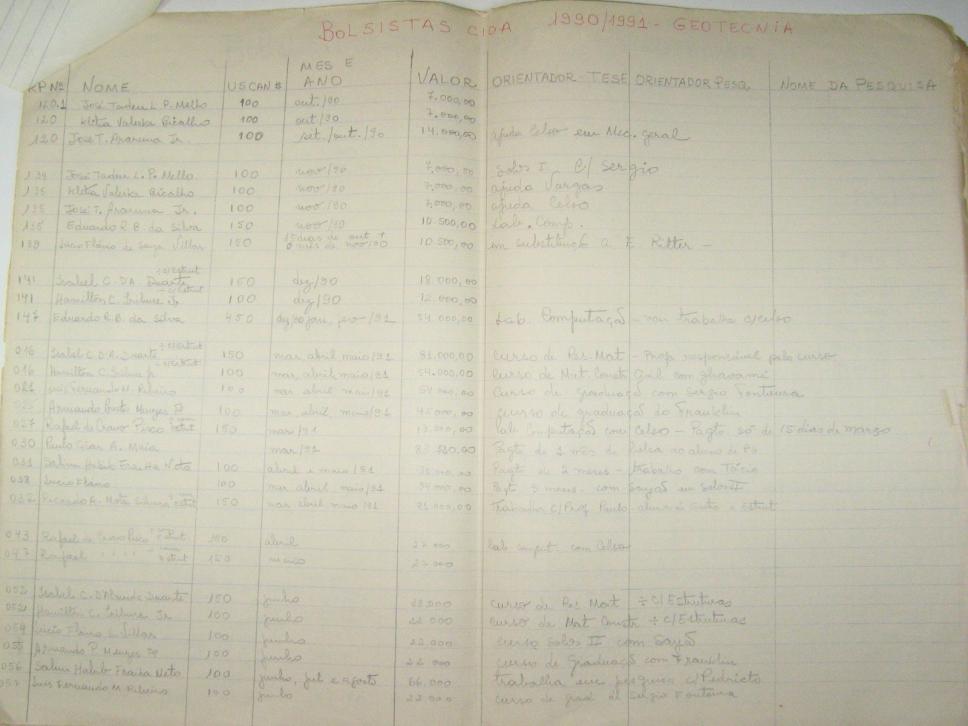 BOLSISTAS CIDA 1990/1991 - GEOTECNIA
RP Nº NOME US CAN $ MES E ANO VALOR ORIENTADOR-TESE ORIENTADOR PESQ. NOME DA PESQUISA
120.1 José Tadeu L. P. Mello 100 out./90 7.000,00
120 Klétia Valeska Bicalho 100 out/90 7.000,00
120 José T. Araruna Jr. 100 set./out./90 14.000,00 ajuda Celso em Mec. geral
134 José Tadeu L. P. Mello 100 nov/90 7.000,00 Solos I C/ Sergio
135 Klétia Valeska Bicalho 100 nov/90 7.000,00 ajuda Vargas
135 José T. Araruna Jr. 100 nov/90 7.000,00 ajuda Celso
135 Eduardo R. B. da Silva 150 nov/90 10.500,00 Lab. Comp.
139 Lucio Flávio de Souza Villar 150 15 dias de out + o mês de nov/90 10.500,00 em substituiçã a E. Ritter -
141 Isabel C. DA. Duarte ÷ c/Estrut 150 dez/90 18.000,00
141 Hamilton C. Jr ÷ c/Estrut 100 dez/90 12.000,00
147 Eduardo R. B. da Silva 450 dez/90 jan, fev/91 54.000,00 Lab. Computaçã - vai trabalha c/Celso
016 Isabel C. D.A. Duarte ÷ c/Estrut 150 mar, abril maio/91 81.000,00 curso de Res. Mat - Prof. responsável pelo curso
016 Hamilton C. Jr ÷ c/Estrut 100 mar, abril maio/91 54.000,00 curso de Mat. Constr. Civil com
021 Luis Fernando M. Ribeiro 100 mar, abril maio/91 54.000,00 curso de graduaçã com Sergio Fontoura
Armando Menezes 100 mar, abril maio/91 curso de graduaçã do Franklin
027 Rafael de 150 mar/91 Lab Computação com Celso - Pagto. só de 15 dias de março
030 Paulo Cesar A. Maia mar/91 Pagto de 1 mês de
031 Salim Habib Fraiha Neto 100 abril e maio/91 Pagto de 2 meses - trabalho com Tácio
038 Lucio Flávio 100 mar, abril maio/91 Pgt 3 meses com Sayã em Solos II
Ricardo A. Mota 150 mar abril maio/91 81.000,00 Trabalha c/Prof. Paulo
043 Rafael de 150 abril 27.000 Lab comput. com Celso
047 Rafael " " " " 150 maio 27.000
052 Isabel C. D'Almeida Duarte 150 junho 33.000 curso de Res. Mat ÷ C/Estruturas
052 Hamilton C. Jr 100 junho 22.000 curso de Mat. Constr ÷ c/Estruturas
054 Lucio Flávio S. Villar 100 junho 22.000 curso Solos II com Sayã
055 Armando P. Menezes 100 junho 22.000 curso de graduaçã com Franklin
056 Salim Habib Fraiha Neto 100 junho, jul e agosto 66.000 trabalha em pesquisa c/
057 Luis Fernando M. Ribeiro 100 junho 22.000 curso de grad. de Sergio Fontoura